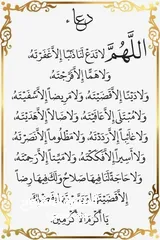 دعاء
اللَّهُمَّ لَا تَدَعْ لَنَا ذَنْبًا إِلَّا غَفَرْتَهُ
وَلَا هَمًّا إِلَّا فَرَّجْتَهُ
وَلَا دَيْنًا إِلَّا قَضَيْتَهُ وَلَا مَرِيضًا إِلَّا شَفَيْتَهُ
وَلَا مُبْتَلًى إِلَّا عَافَيْتَهُ وَلَا ضَالًّا إِلَّا هَدَيْتَهُ
وَلَا غَائِبًا إِلَّا رَدَدْتَهُ وَلَا مَظْلُومًا إِلَّا نَصَرْتَهُ
وَلَا أَسِيرًا إِلَّا فَكَكْتَهُ وَلَا مَيِّتًا إِلَّا رَحِمْتَهُ
وَلَا حَاجَةً لَنَا فِيهَا صَلَاحٌ وَلَكَ فِيهَا رِضًا
إِلَّا قَضَيْتَهَا
يَا أَكْرَمَ الْأَكْرَمِينَ